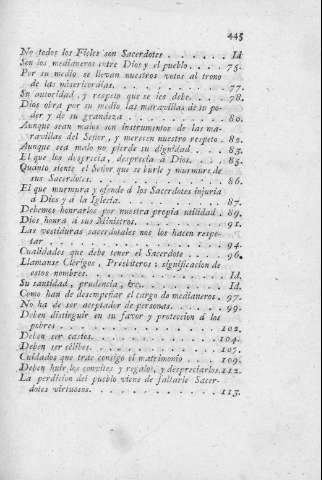 445
No todos los Fieles son Sacerdotes . . . . . . Id.
Son los medianeros entre Dios y el pueblo . . . . 75.
Por su medio se llevan nuestros votos al trono
de las misericordias. . . . . . . . . . . . 77.
Su autoridad, y respeto que se les debe. . . . . 78.
Dios obra por su medio las maravillas de su po-
der y de su grandeza . . . . . . . . . . . 80.
Aunque sean malos son instrumentos de las ma-
ravillas del Señor, y merecen nuestro respeto . 82.
Aunque sea malo no pierde su dignidad . . . . 83.
El que los desprecia, desprecia á Dios. . . . . 85.
Quánto siente el Señor que se burle y murmure de
sus Sacerdotes. . . . . . . . . . . . . . 86.
El que murmura y ofende á los Sacerdotes injuria
á Dios y á la Iglesia. . . . . . . . . . . 87.
Debemos honrarlos por nuestra propia utilidad . 89.
Dios honra á sus Ministros. . . . . . . . . . 91.
Las vestiduras sacerdotales nos los hacen respe-
tar . . . . . . . . . . . . . . . . . . 94.
Cualidades que debe tener el Sacerdote . . . . 96.
Llamanse Clerigos, Presbiteros: significacion de
estos nombres. . . . . . . . . . . . . . Id.
Su santidad, prudencia, &c. . . . . . . . . Id.
Como han de desempeñar el cargo de medianeros . 97.
No ha de ser aceptador de personas. . . . . . 99.
Deben distinguir en su favor y proteccion á los
pobres . . . . . . . . . . . . . . . . . 102.
Deben ser castos. . . . . . . . . . . . . . 104.
Deben ser célibes. . . . . . . . . . . . . 107.
Cuidados que trae consigo el matrimonio . . . . 109.
Deben huir los convites y regalos, y despreciarlos. 112.
La perdicion del pueblo viene de faltarle Sacer-
dotes virtuosos. . . . . . . . . . . . . . 113.